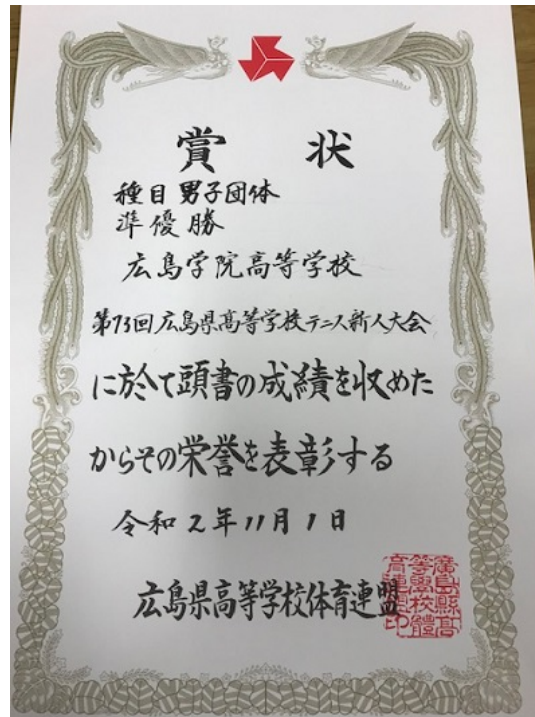 賞 状
種目 男子団体
準優勝
広島学院高等学校
第73回広島県高等学校テニス新人大会
に於て頭書の成績を収めた
からその栄誉を表彰する
令和2年11月1日
広島県高等学校体育連盟